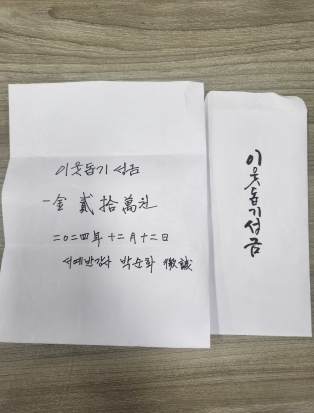 이웃돕기 성금
一金 貳拾萬원
二〇二四年 十二月 十二日
서예반강사 박순화
이웃돕기성금